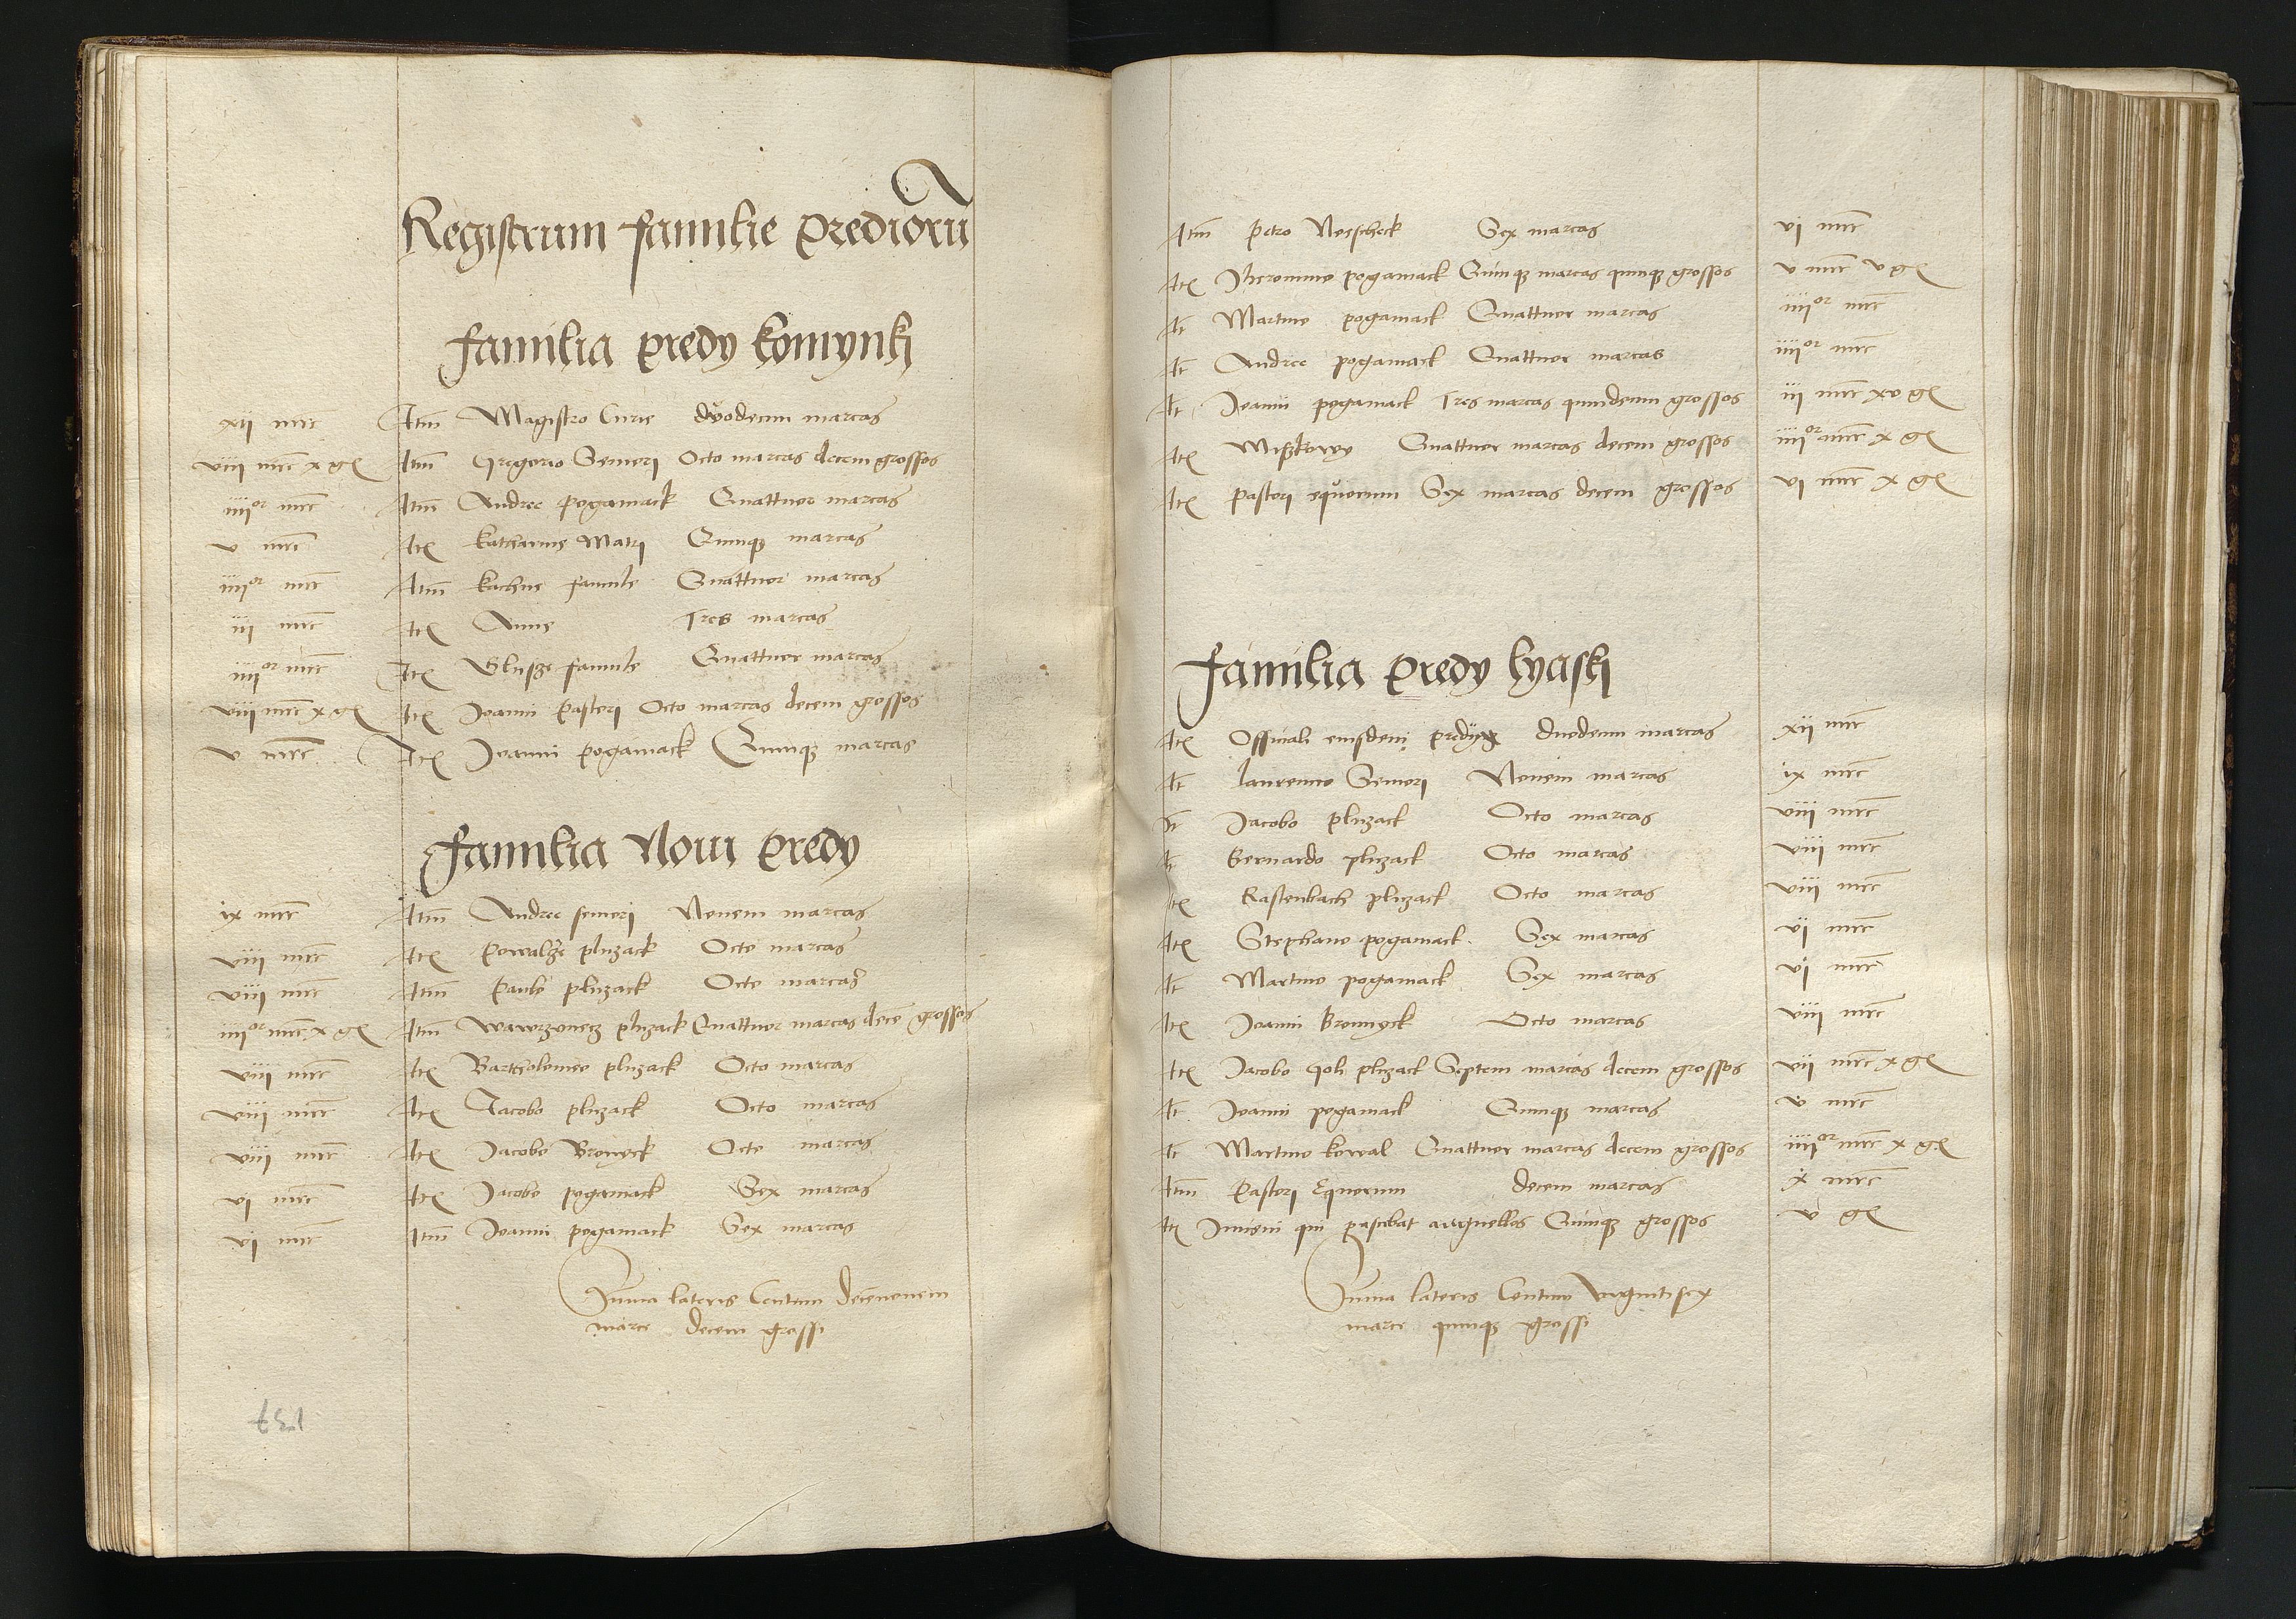 Registrum familie prediorū
familia predy komynki
xii mrc Itm Magistro Curie duodecim marcas
viii mrc x gr Itm Gregorio Semori Octo marcas decem grossos
iiiior mrc Itm Andree pogamack Quattuor marcas
v mrc Ite katherine Matri Quinqz marcas
iiiior mrc Itm kachne famule Quattuor marcas
iii mrc Ite Anne Tres marcas
iiiior mrc Ite famule Quattuor marcas
viii mrc x gr Ite Joanni pastori Octo marcas decem grossos
v mrc Ite Joanni pogamack Quinqz marcas
familia Noui predy
ix mrc Itm Andree semori Nouem marcas
viii mrc Ite kowalże pluzack Octo marcas
viii mrc Itm Paulo pluzack Octo marcas
iiiior mrc x gr Itm wawrzonecz pluzack Quattuor marcas decē grossos
viii mrc Ite Bartholomeo pluzack Octo marcas
viii mrc Ite Jacobo pluzack Octo marcas
viii mrc Ite Jacobo Bronyck Octo marcas
vi mrc Ite Jacobo pogamack Sex marcas
vi mrc Itm Joanni pogamack Sex marcas
Suma lateris Centum decenouem
marce decem grossi
137
Itm petro Noescheck Sex marcas vi mrc
Ite Jheronimo pogamack Quinqz marcas quinqz grossos v mrc v gr
It Martino pogamack Quattuor marcas iiiior mrc
It Andree pogamack Quattuor marcas iiiior mrc
It Joanni pogamack Tres marcas quindecim grossos iii mrc xv gr
Ite Quattuor marcas decem grossos iiiior mrc x gr
Ite pastori equorum Sex marcas decem grossos vi mrc x gr
familia predy lyaski
Ite Officiali eiusdem predy duodecim marcas xii mrc
It laurencio Semori Nouem marcas ix mrc
It Jacobo pluzack Octo marcas viii mrc
It Bernardo pluzack Octo marcas viii mrc
Ite Rastenbach pluzack Octo marcas viii mrc
Ite Stephano pogamack Sex marcas vi mrc
It Martino pogamack Sex marcas vi mrc
Ite Joanni Bronnyck Octo marcas viii mrc
Ite Jacobo Goli pluzack Septem marcas decem grossos vii mrc x gr
It Joanni pogamack Quinqz marcas v mrc
It Martino kowal Quattuor marcas decem grossos iiiior mrc x gr
Itm Pastori Equorum decem marcas x mrc
Ite Juueni qui pascebat angnellos Quinqz grossos v gr
Suma lateris Centum vigintisex
marce quinqz grossi